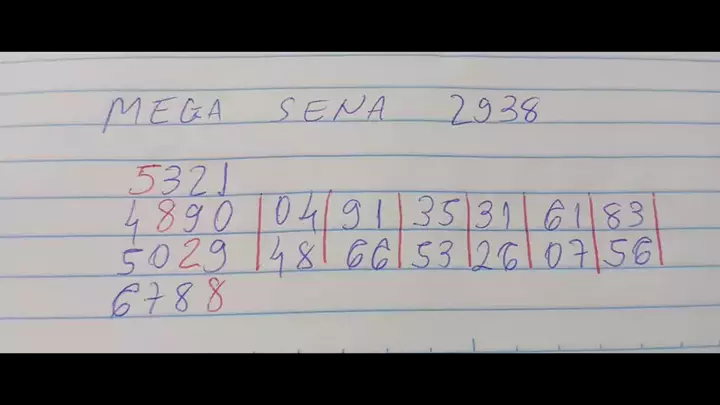 MEGA SENA 2938
5321
4890 | 04 | 91 | 35 | 31 | 61 | 83 |
5029 | 48 66 | 53 | 26 | 07 | 56 |
6788